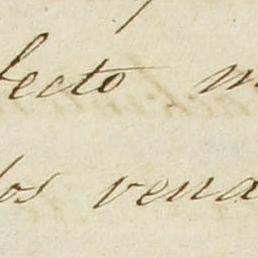 fecto m
los vena